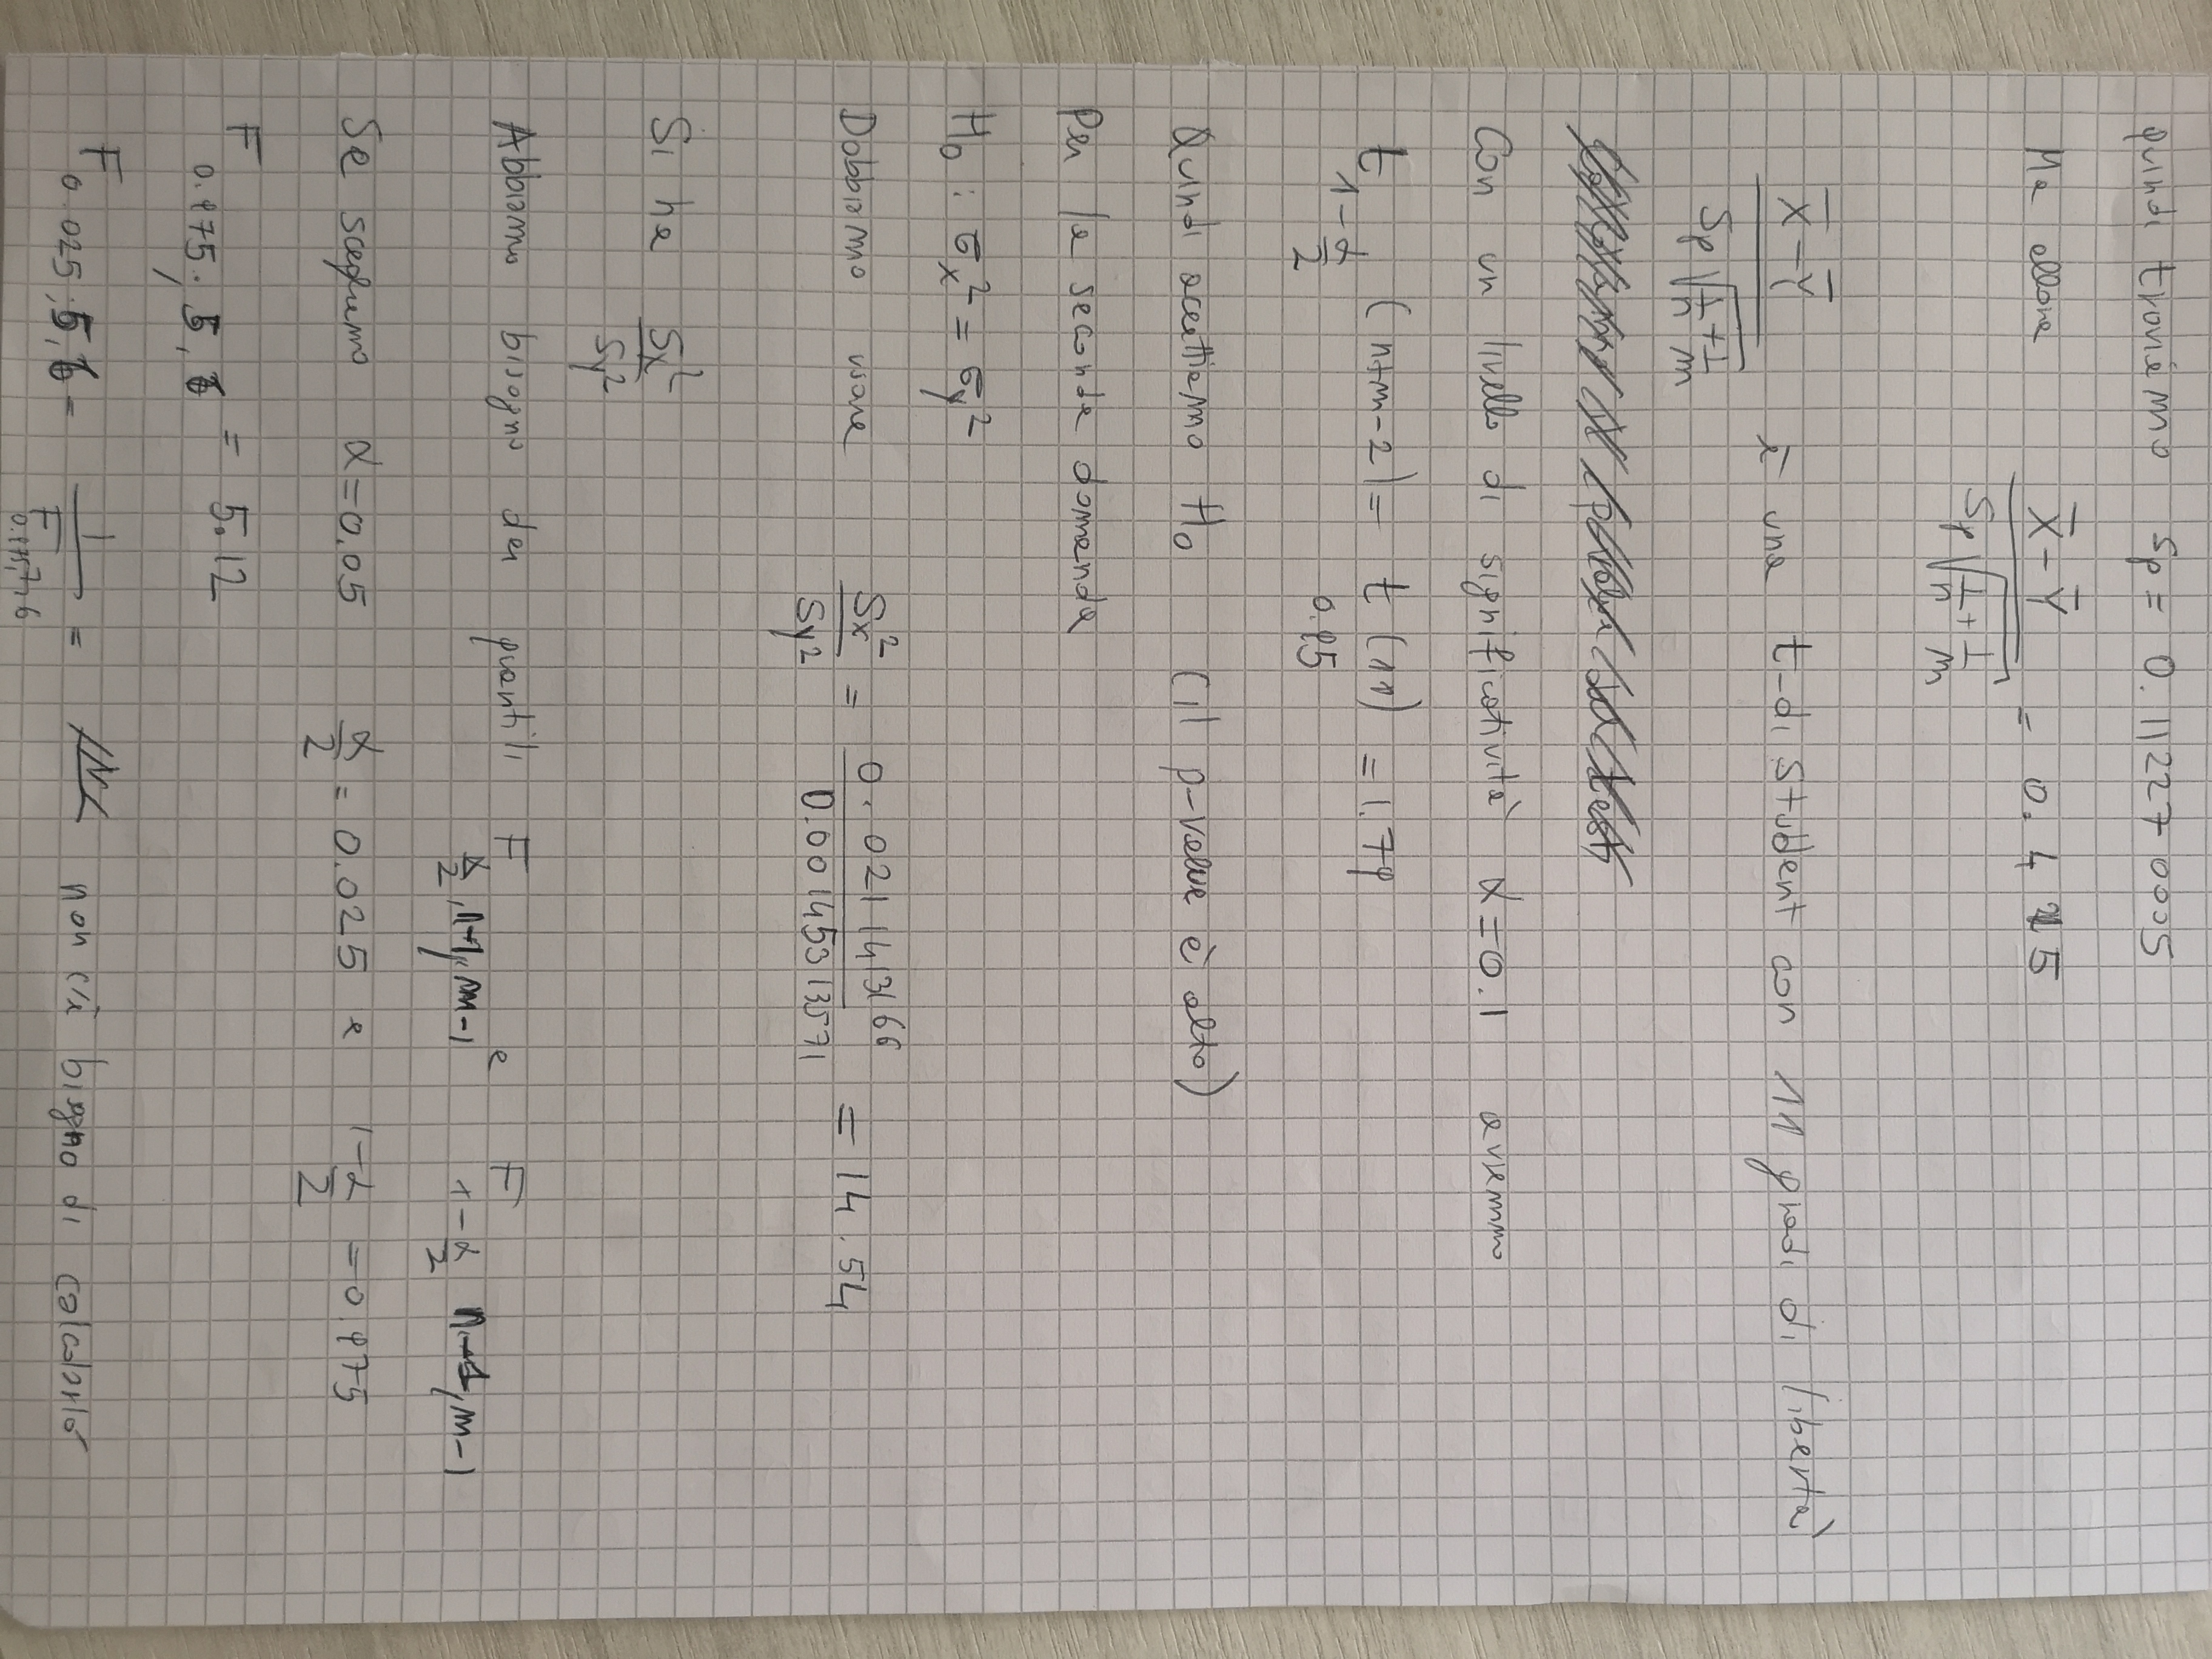 quindi troviamo Sp = 0.1122270005
Ma allora X̄ − Ȳ / Sp √(1/n + 1/m) = 0.415
X̄ − Ȳ / Sp √(1/n + 1/m) è una t-di Student con 11 gradi di libertà
Con un livello di significatività α = 0.1 avremmo
t 1−α/2 (n+m−2) = t 0.95 (11) = 1.79
Quindi accettiamo H0 (il p-value è alto)
Per la seconda domanda
H0 : σx² = σy²
Dobbiamo usare Sx²/Sy² = 0.0211413166/0.00145313571 = 14.54
Si ha Sx²/Sy²
Abbiamo bisogno dei quantili F α/2, n−1, m−1 e F 1−α/2 n−1, m−1
Se scegliamo α = 0.05 α/2 = 0.025 e 1−α/2 = 0.975
F 0.975; 5, 6 = 5.12
F 0.025; 5, 6 = 1/F 0.975, 7, 6 = non c'è bisogno di calcolarlo